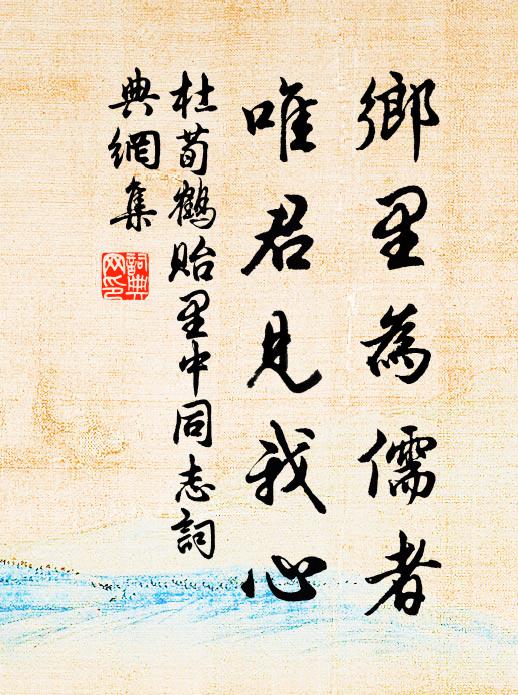 鄉里為儒者
唯君見我心
杜荀鶴貽里中同志詞
典網集
詞典網印